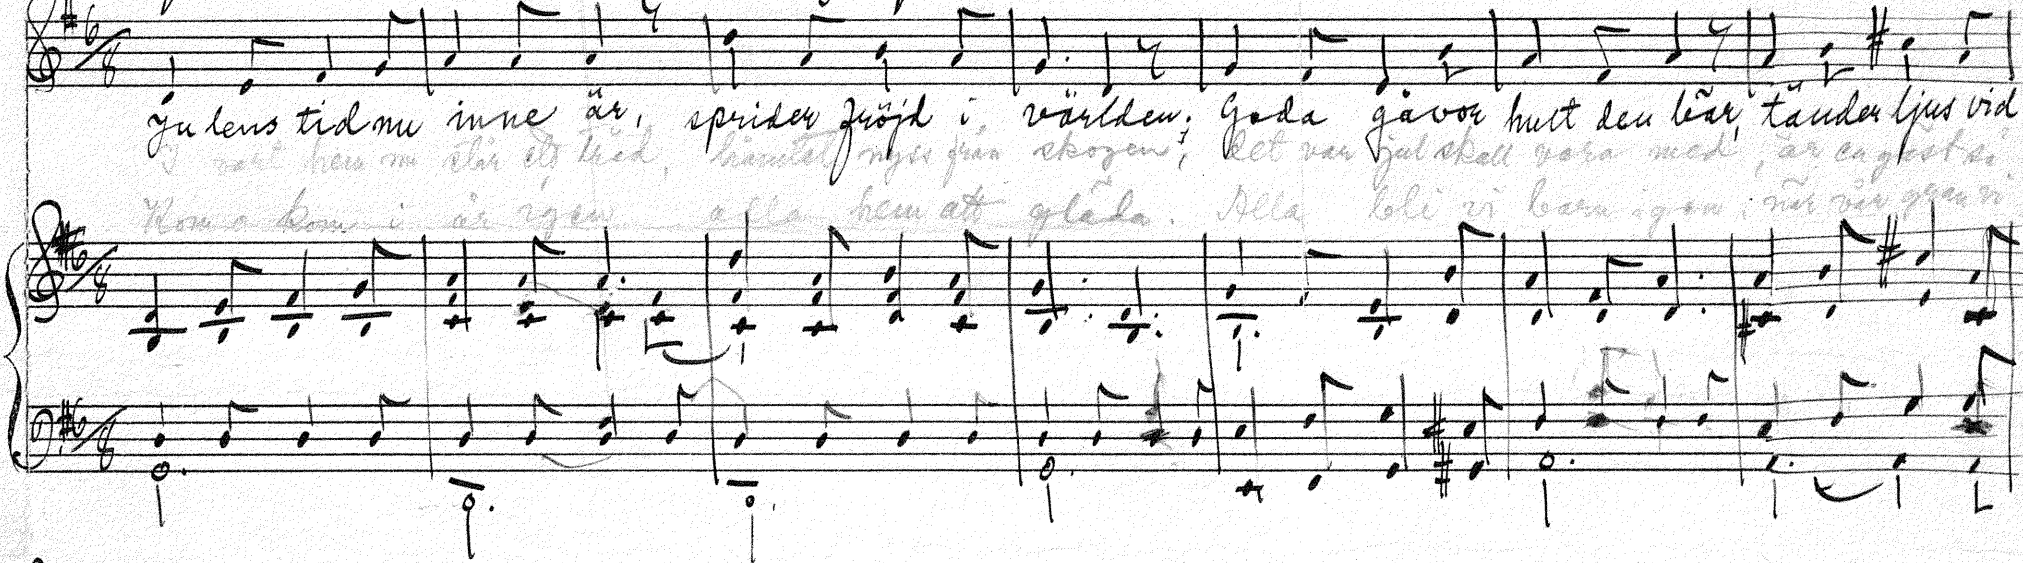 Julens tid nu inne är, sprider fröjd i världen; Goda gåvor hutt den bär, tänder ljus vid
I vart hem nu står ett träd, hämtat nyss från skogen; Det var jul skall vara med, är en gäst så
Komo kom i år igen alla hem att gläda. Alla bli vi barn igen; när vår gran vi